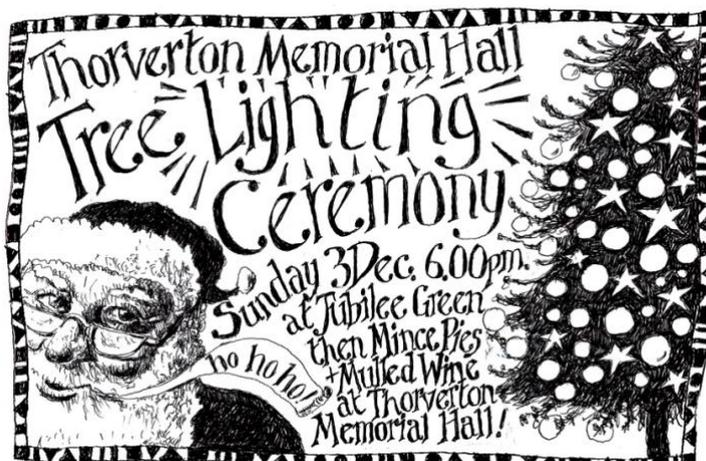 Thorverton Memorial Hall
Tree Lighting
Ceremony
Sunday 3 Dec. 6.00pm.
at Jubilee Green
then Mince Pies
+ Mulled Wine
at Thorverton
Memorial Hall!
ho ho ho!